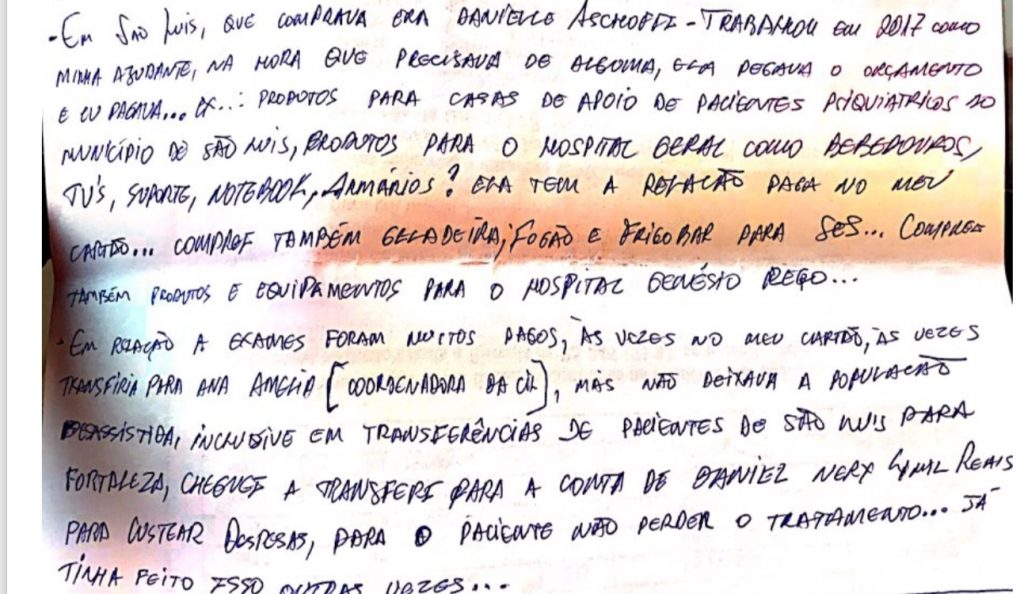 - Em São Luis, que comprava era Danielle Aschoff - Trabalhou em 2017 como
minha ajudante, na hora que precisava de alguma, ela pegava o orçamento
e eu pagava... ex..: produtos para casas de apoio de pacientes psiquiatricos no
município de São Luis, produtos para o Hospital Geral como bebedouros,
TV's, suporte, notebook, armários? Ela tem a relação paga no meu
cartão... comprei também geladeira, fogão e frigobar para SES... Comprei
também produtos e equipamentos para o Hospital Genésio Rego...
- Em relação a exames foram muitos pagos, às vezes no meu cartão, às vezes
transfiria para Ana Amelia [coordenadora da CIL], mas não deixava a população
desassistida, inclusive em transferências de pacientes de São Luis para
Fortaleza, cheguei a transferi para a conta de Daniel Nerx mil Reais
para custear despesas, para o paciente não perder o tratamento... já
tinha feito isso outras vezes...